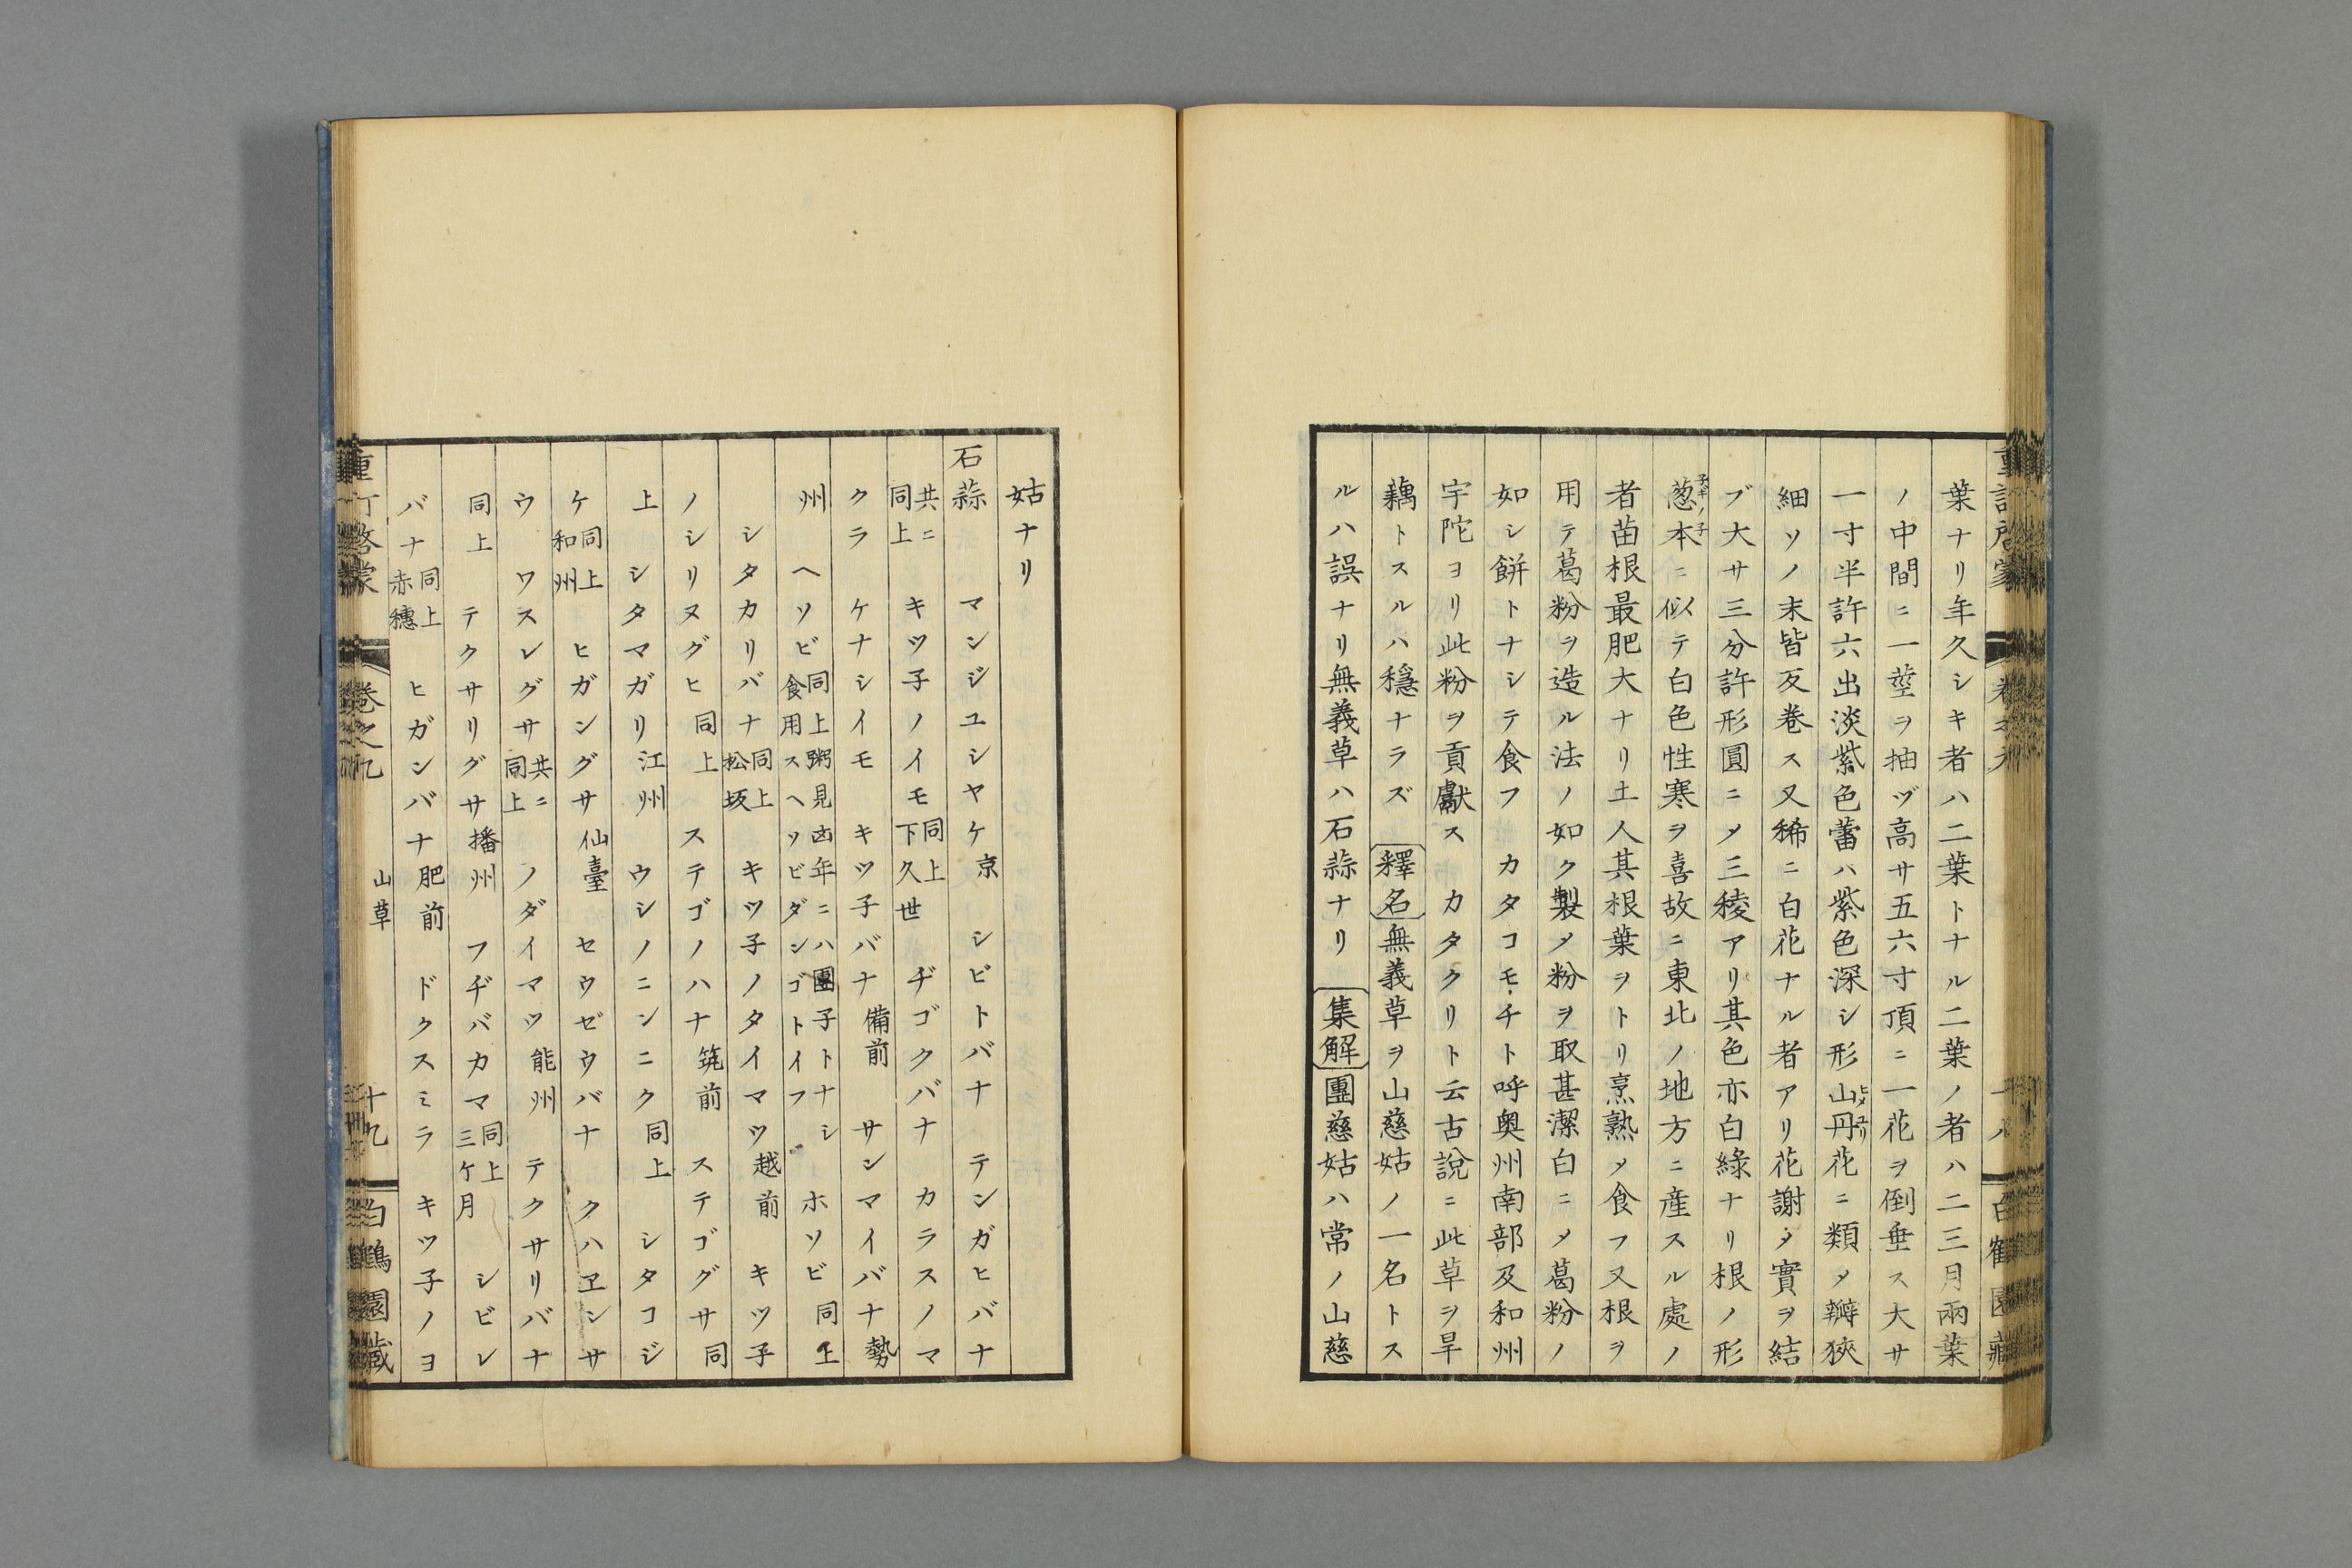 葉ナリ年久シキ者ハ二葉トナル二葉ノ者ハ二三月兩葉
ノ中間ニ一莖ヲ抽ヅ高サ五六寸頂ニ一花ヲ倒垂ス大サ
一寸半許六出淡紫色蕾ハ紫色深シ形山丹花ニ類乄瓣狹
細ソノ末皆反巻ス又稀ニ白花ナル者アリ花謝乄實ヲ結
ブ大サ三分許形圓ニ乄三稜アリ其色亦白綠ナリ根ノ形
葱本ニ似テ白色性寒ヲ喜故ニ東北ノ地方ニ産スル處ノ
者苗根最肥大ナリ土人其根葉ヲトリ烹熟乄食フ又根ヲ
用テ葛粉ヲ造ル法ノ如ク製乄粉ヲ取甚潔白ニ乄葛粉ノ
如シ餅トナシテ食フ カタコモチト呼奥州南部及和州
宇陀ヨリ此粉ヲ貢獻ス カタクリト云古說ニ此草ヲ旱
藕トスルハ穩ナラズ 釋名 無義草ヲ山慈姑ノ一名トス
ルハ誤ナリ無義草ハ石蒜ナリ 集解 團慈姑ハ常ノ山慈
姑ナリ
石蒜 マンジユシヤケ京 シビトバナ テンガヒバナ
共ニ同上 キツ子ノイモ同上下久世 ヂゴクバナ カラスノマ
クラ ケナシイモ キツ子バナ備前 サンマイバナ勢
州 ヘソビ同上粥見凶年ニハ團子トナシ食用スヘソビダンゴトイフ ホソビ同上
シタカリバナ同上松坂 キツ子ノタイマツ越前 キツ子
ノシリヌグヒ同上 ステゴノハナ筑前 ステゴグサ同
上 シタマガリ江州 ウシノニンニク同上 シタコジ
ケ同上和州 ヒガングサ仙臺 セウゼウバナ クハヱンサ
ウ ワスレグサ共ニ同上 ノダイマツ能州 テクサリバナ
同上 テクサリグサ播州 フヂバカマ同上三ケ月 シビレ
バナ同上赤穗 ヒガンバナ肥前 ドクスミラ キツ子ノヨ
巻之九 山草 十九 白鶴園藏